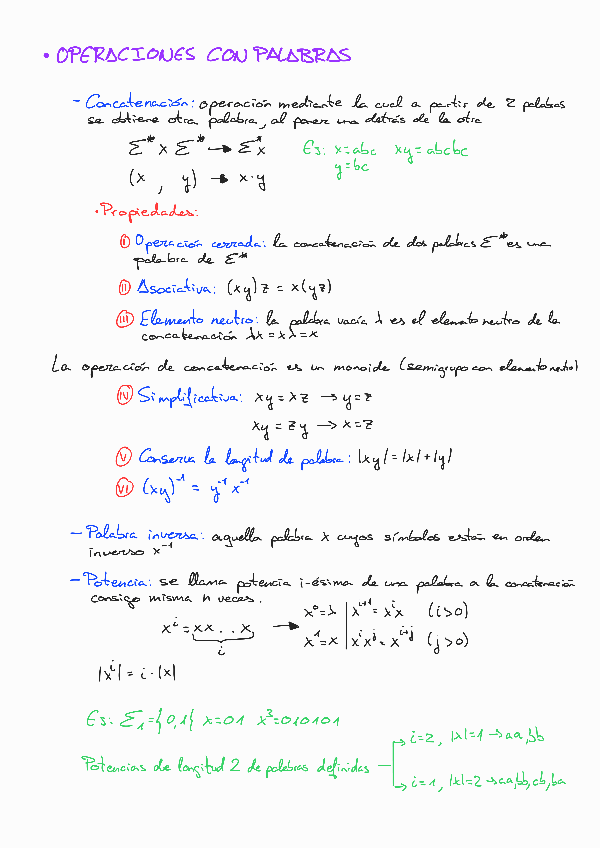 • OPERACIONES CON PALABRAS
- Concatenación: operación mediante la cual a partir de 2 palabras
se obtiene otra palabra, al poner una detrás de la otra
Σ* x Σ* → Σ*x
Ej: x=abc xy=abcbc
y=bc
(x , y) → x·y
• Propiedades:
I Operación cerrada: la concatenación de dos palabras Σ* es una
palabra de Σ*
II Asociativa: (xy)z = x(yz)
III Elemento neutro: la palabra vacía λ es el elemento neutro de la
concatenación λx = xλ = x
La operación de concatenación es un monoide (semigrupo con elemento neutro)
IV Simplificativa: xy = xz → y = z
xy = zy → x = z
V Conserva la longitud de palabra: |xy| = |x| + |y|
VI (xy)⁻¹ = y⁻¹ x⁻¹
- Palabra inversa: aquella palabra x cuyos símbolos están en orden
inverso x⁻¹
- Potencia: se llama potencia i-ésima de una palabra a la concatenación
consigo misma n veces.
x⁰=λ | xⁱ⁺¹ = xⁱx (i>0)
xⁱ = xx..x →
x¹=x | xⁱxʲ = xⁱ⁺ʲ (j>0)
i
|xⁱ| = i·|x|
Ej: Σ₁={0,1} x=01 x³=010101
i=2, |x|=1 → aa,bb
Potencias de longitud 2 de palabras definidas
i=1, |x|=2 → aa,bb,ab,ba